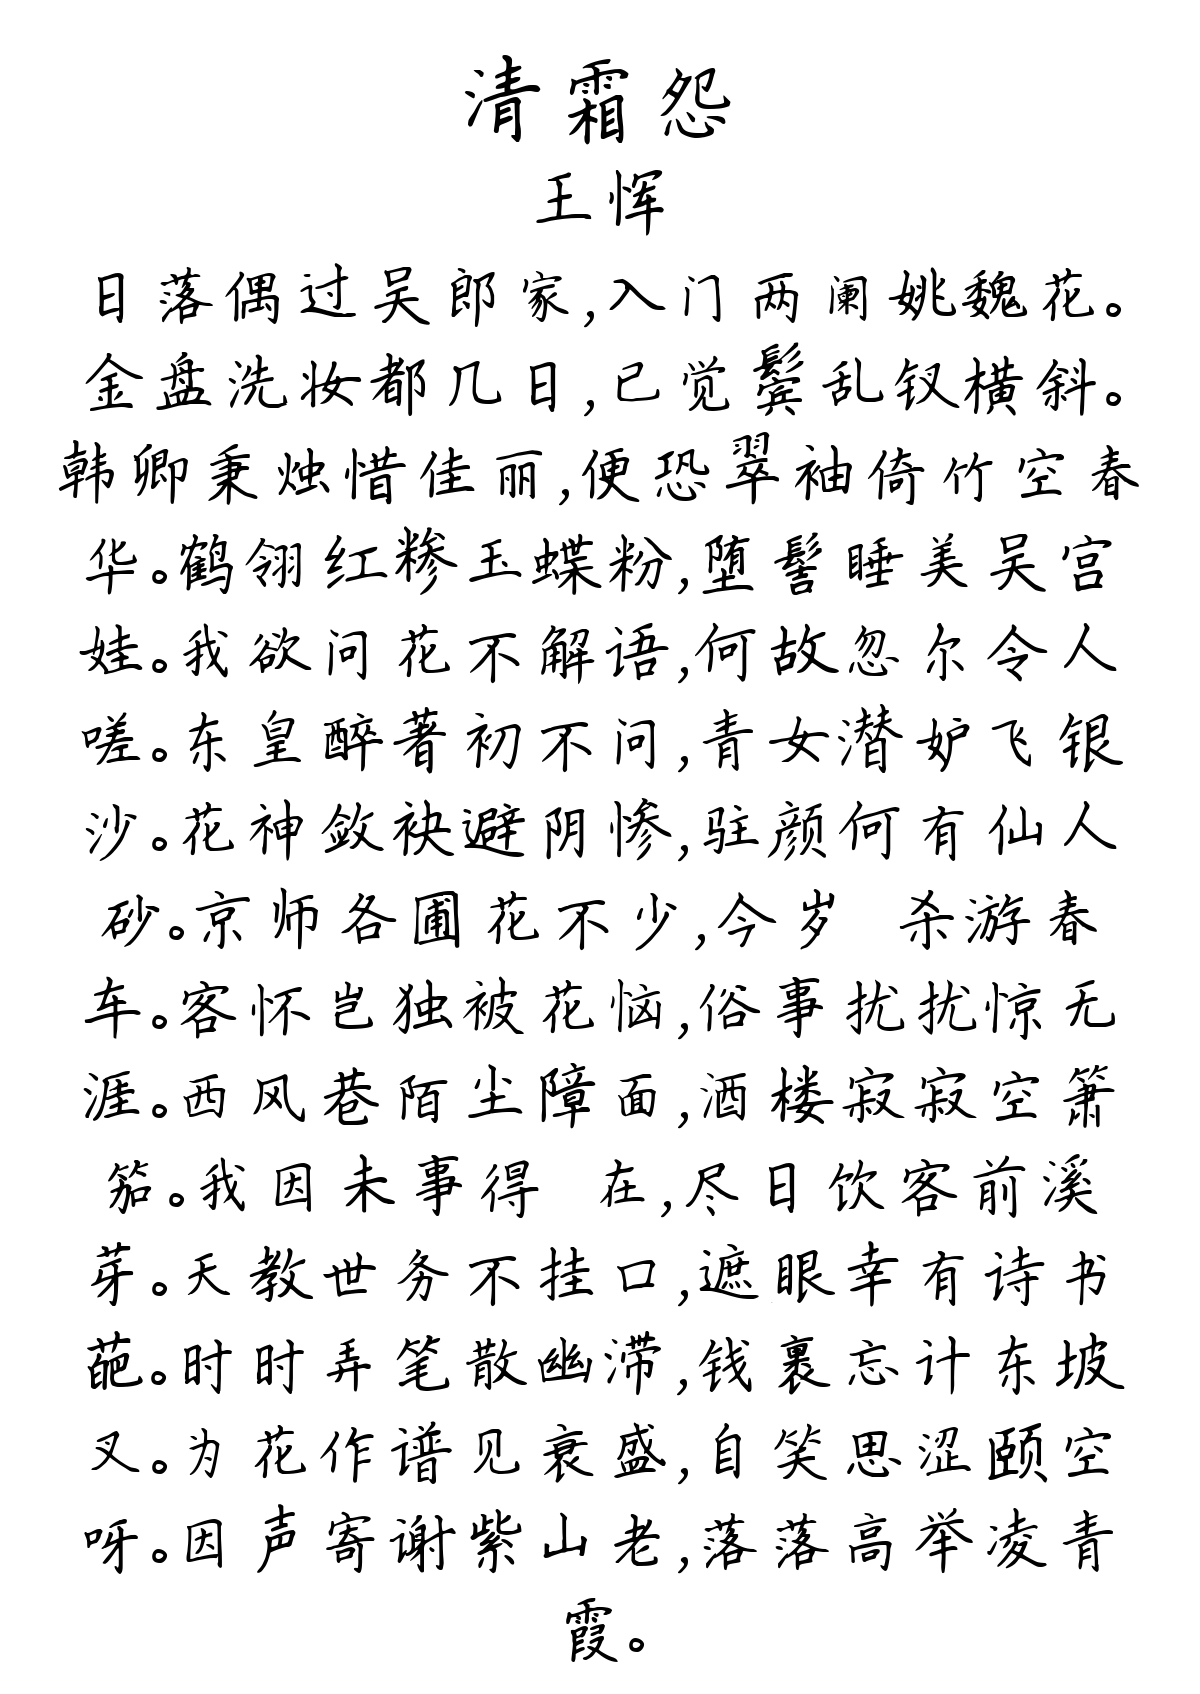 清霜怨
王恽
日落偶过吴郎家,入门两阑姚魏花。
金盘洗妆都几日,已觉鬓乱钗横斜。
韩卿秉烛惜佳丽,便恐翠袖倚竹空春
华。鹤翎红糁玉蝶粉,堕髻睡美吴宫
娃。我欲问花不解语,何故忽尔令人
嗟。东皇醉著初不问,青女潜妒飞银
沙。花神敛袂避阴惨,驻颜何有仙人
砂。京师各圃花不少,今岁 杀游春
车。客怀岂独被花恼,俗事扰扰惊无
涯。西风巷陌尘障面,酒楼寂寂空箫
笳。我因未事得 在,尽日饮客前溪
芽。天教世务不挂口,遮眼幸有诗书
葩。时时弄笔散幽滞,钱裹忘计东坡
叉。为花作谱见衰盛,自笑思涩颐空
呀。因声寄谢紫山老,落落高举凌青
霞。